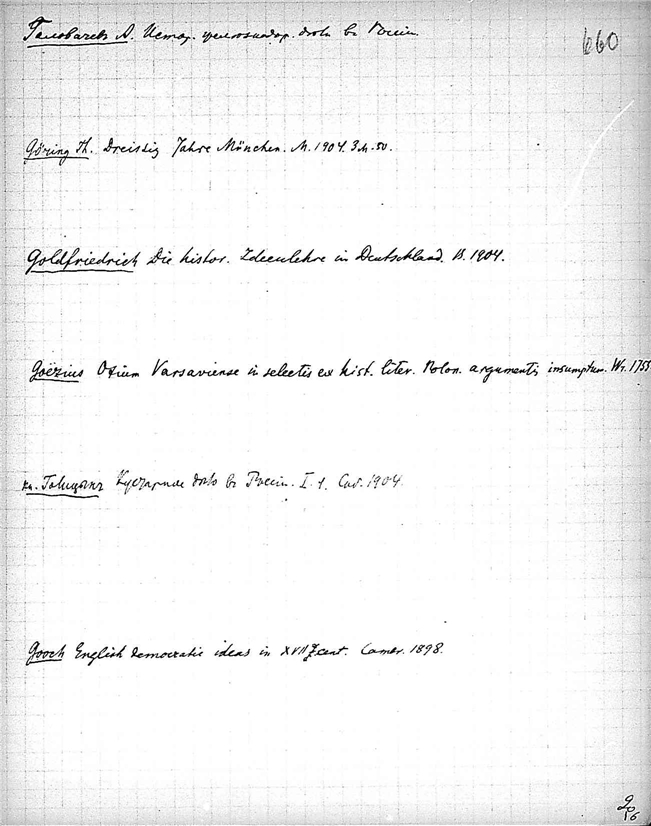 Головачев А. Истор. железнодор. дела въ Россіи.
660
Göring Th. Dreissig Jahre München. M. 1904. 3 M. 50.
Goldfriedrich Die histor. Ideenlehre in Deutschland. B. 1904.
Goëzius Otium Varsaviense in selectis ex hist. liter. Polon. argumentis insumptum. Wr. 1755
кн. Голицынъ Кустарное дѣло въ Россіи. I. 1. Спб. 1904.
Gooch English democratic ideas in XVII cent. Cambr. 1898.